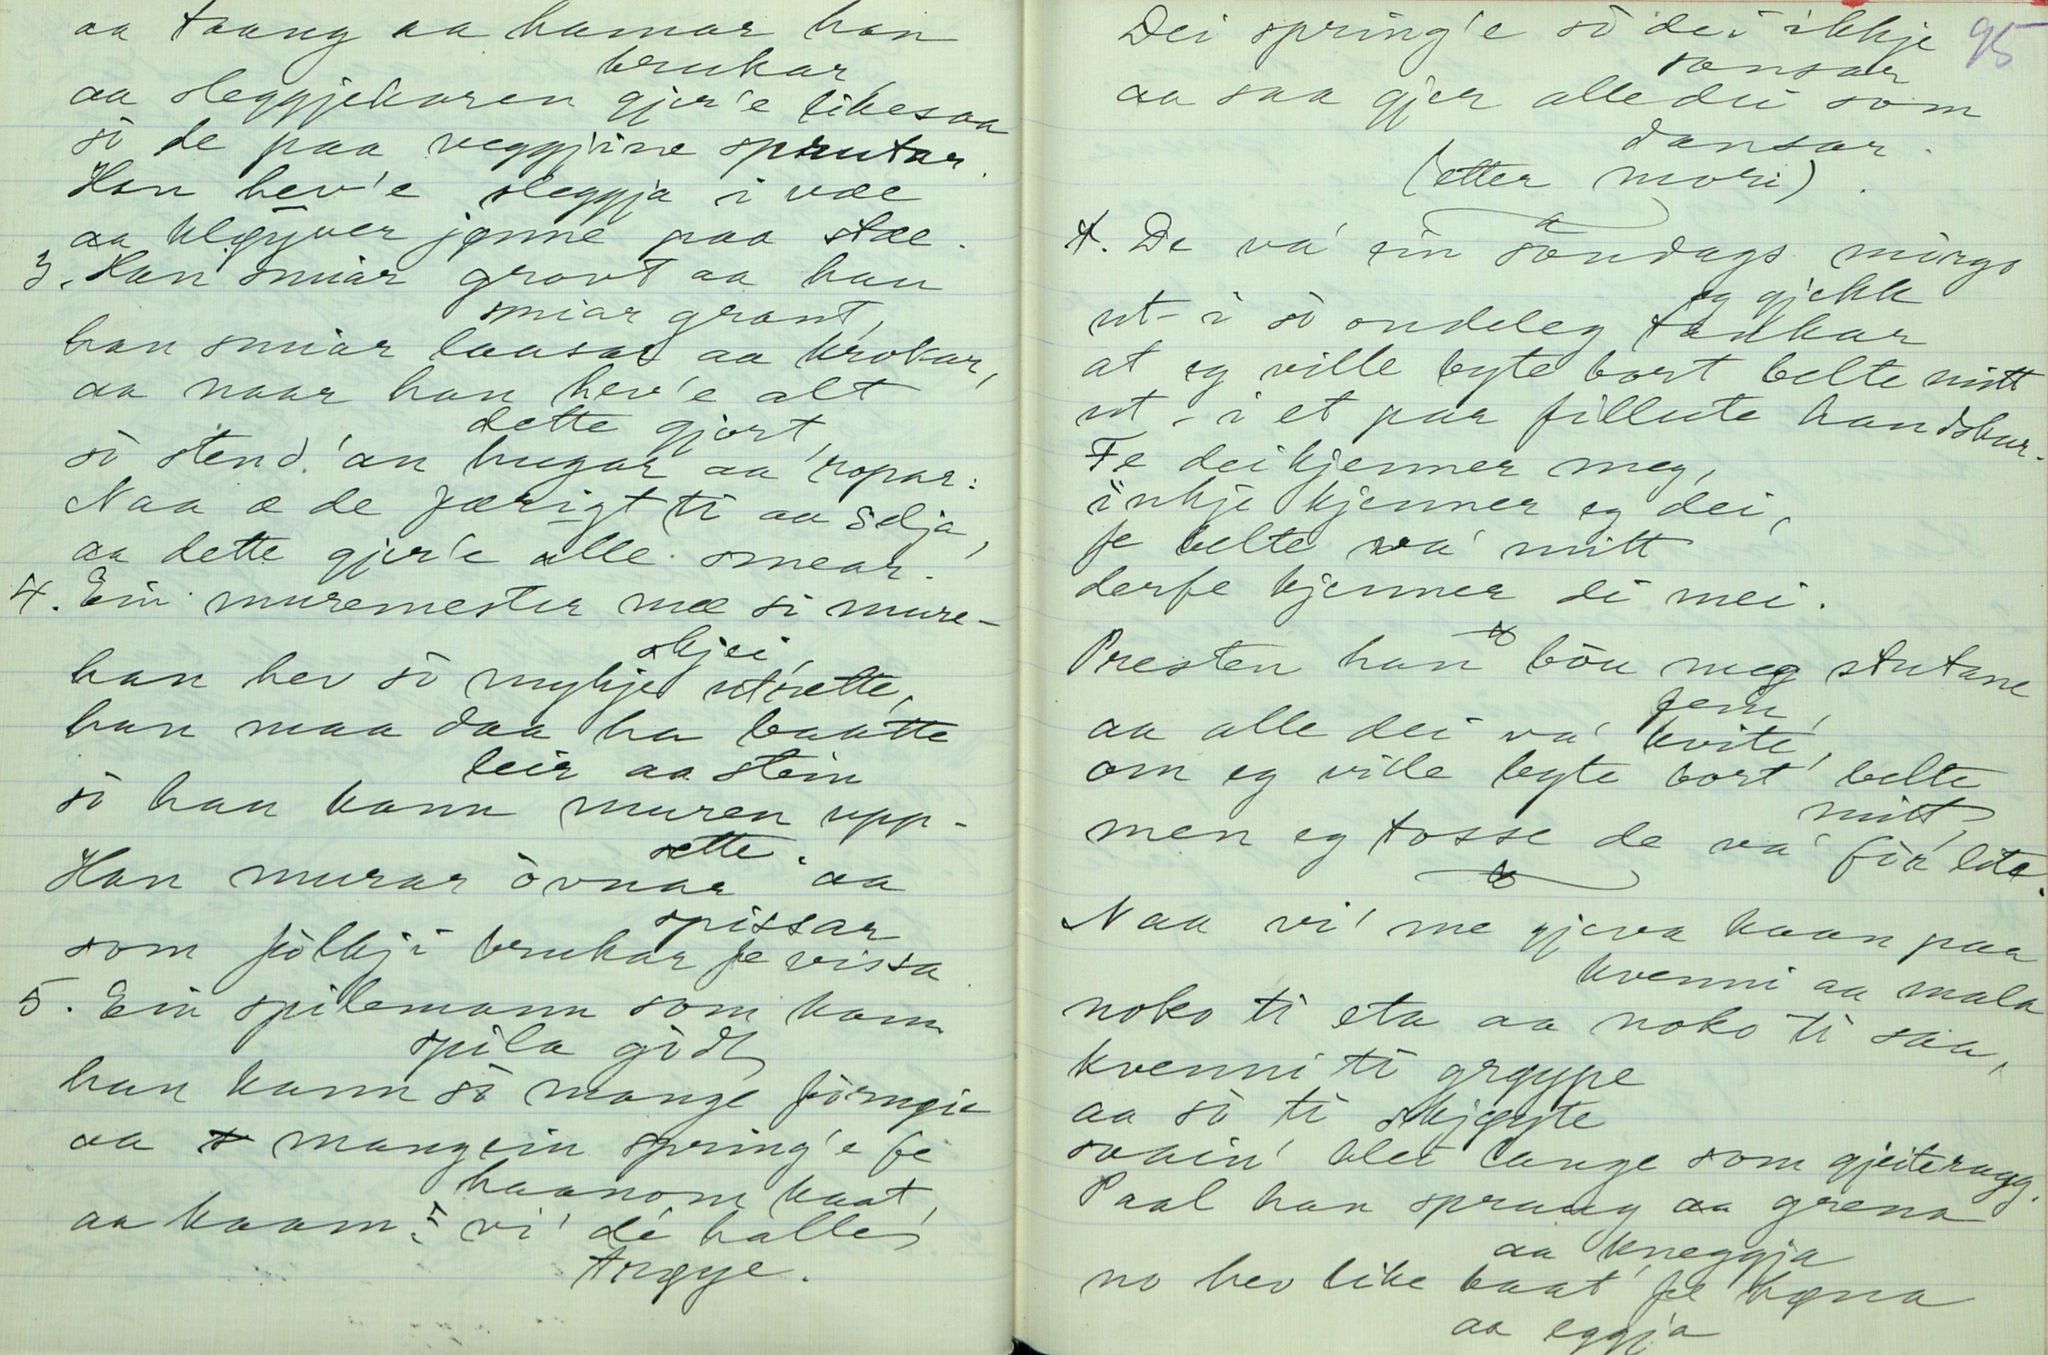 aa taang aa hamar han
brukar
aa sleggjekaren gjer'e likesaa
sò de paa veggjine sprutar.
Han hev'e sleggja i væe
aa kløyver jønne paa stæe.
3. Han smiar grovt aa han
smiar grant,
han smiar laasar aa krokar,
aa naar han hev'e alt
dette gjort,
sò stend'an hugar aa ropar:
Naa æ de færigt ti aa selja,
aa dette gjer'e alle smear.
4. Ein muremester mæ si mure-
skjei,
han hev sò mykje utrette,
han maa daa ha baatte
leir aa stein
sò han kann muren upp-
sette.
Han murar òvnar aa
spissar
som fòlkji brukar fe vissa
5. Ein spilemann som kann
spila gòdt
han kann sò mange fòrnøie
aa mangein spring'e fe
haanom kaat,
aa kaam: vi' de halle
trøye.
95
Dei spring'e sò dei ikkje
sansar
aa saa gjer alle dei som
dansar.
(etter mori).
t. De va' ein søndags mórgo
eg gjekk
ut i sò ondeleg tankar
at eg ville byte bort belte mitt
ut i et par fillute handskar.
Fe dei kjenner meg,
inkje kjenner eg dei,
fe belte va' mitt
derfe kjenner di mei.
Presten han bòu meg stutane
fem,
aa alle dei va' kvite,
om eg ville byte bort belte
mitt,
men eg tosse de va' fòr lite.
Naa vi' me gjeva kaan paa
kvenni aa mala
noko ti eta aa noko ti saa,
kvenni ti grøype
aa sò ti skjøyte
svain' blei lange som gjeiteragg.
Paal han sprang aa grena
aa kneggja
no hev like baat fe høna
aa eggja